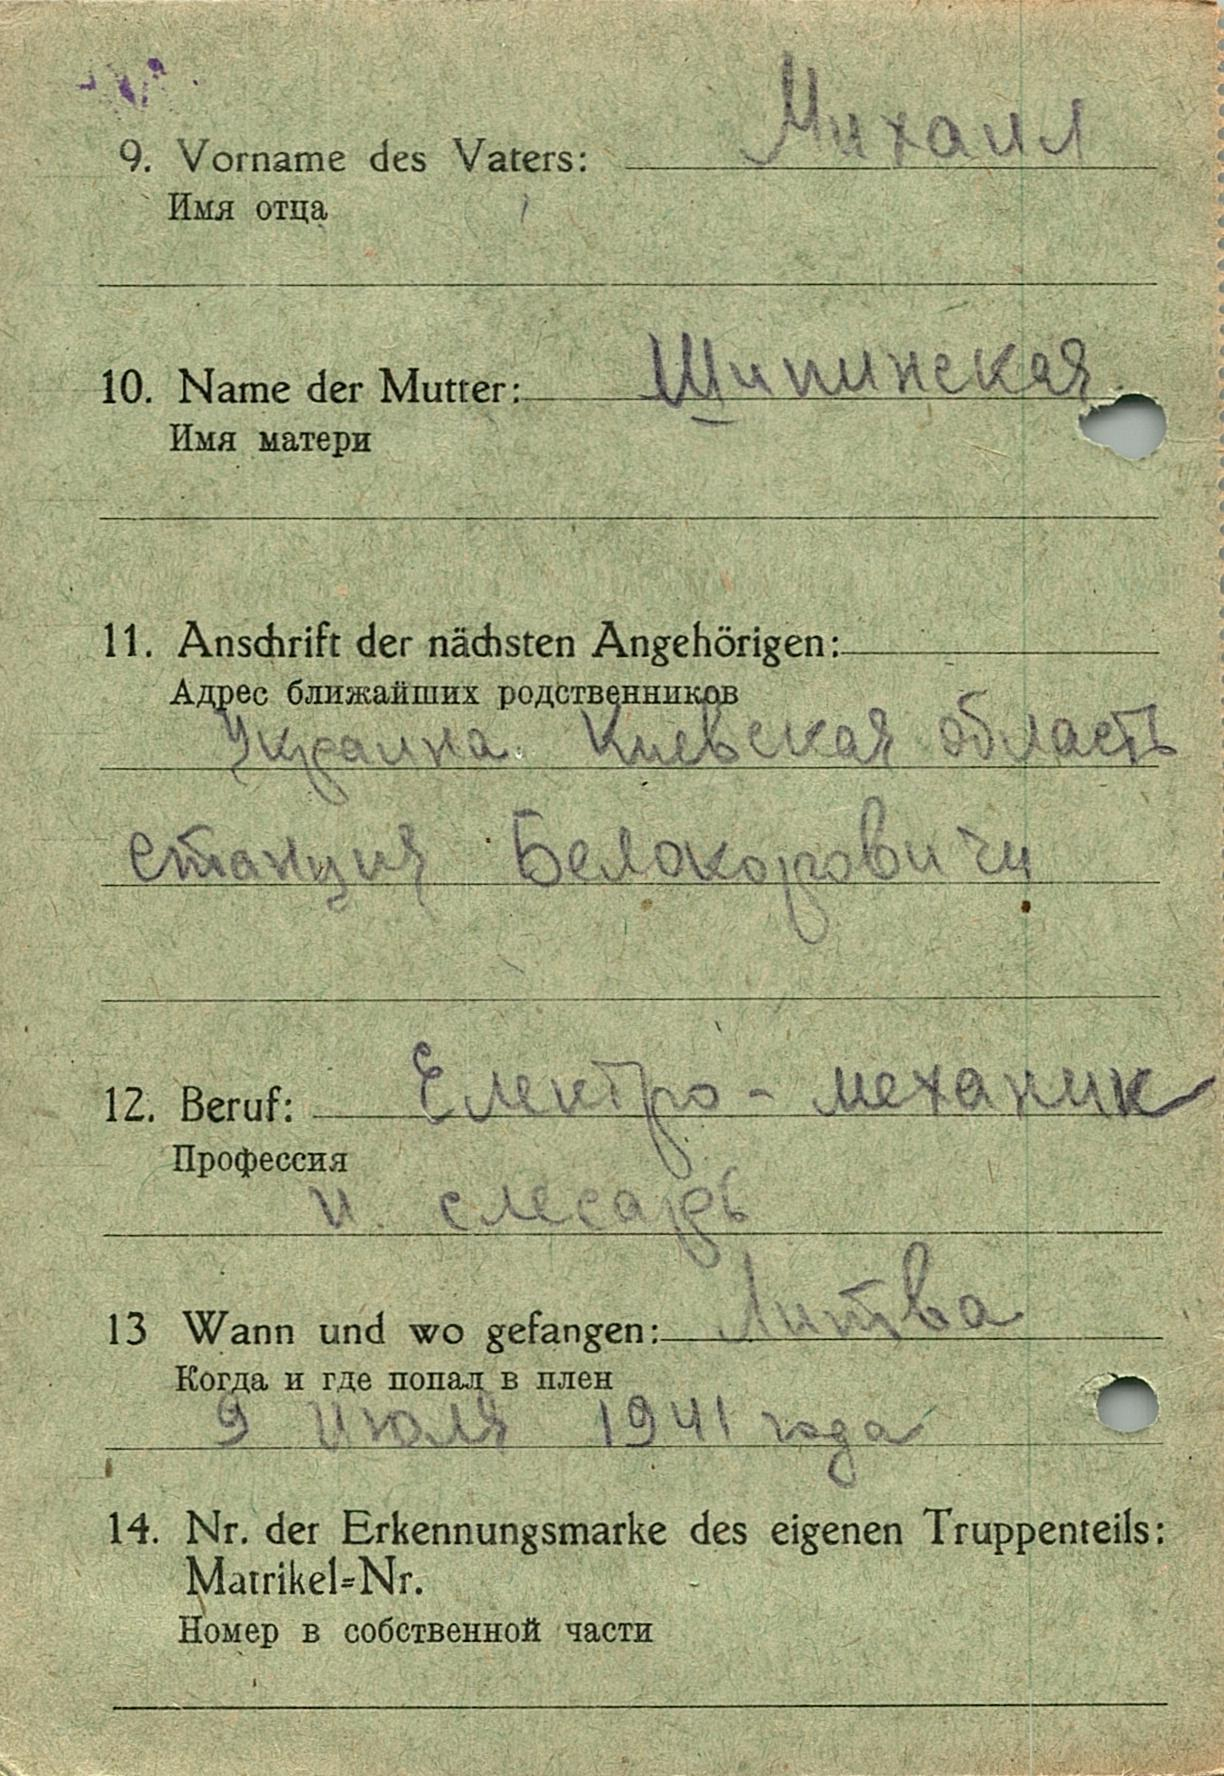 9. Vorname des Vaters: Михаил
Имя отца
10. Name der Mutter: Шипинская
Имя матери
11. Anschrift der nächsten Angehörigen:
Адрес ближайших родственников
Украина. Киевская область
станция Белокоровичи
12. Beruf: Електро-механик
Профессия
и. слесарь
13 Wann und wo gefangen: Литва
Когда и где попал в плен
9 Июля 1941 года
14. Nr. der Erkennungsmarke des eigenen Truppenteils:
Matrikel=Nr.
Номер в собственной части